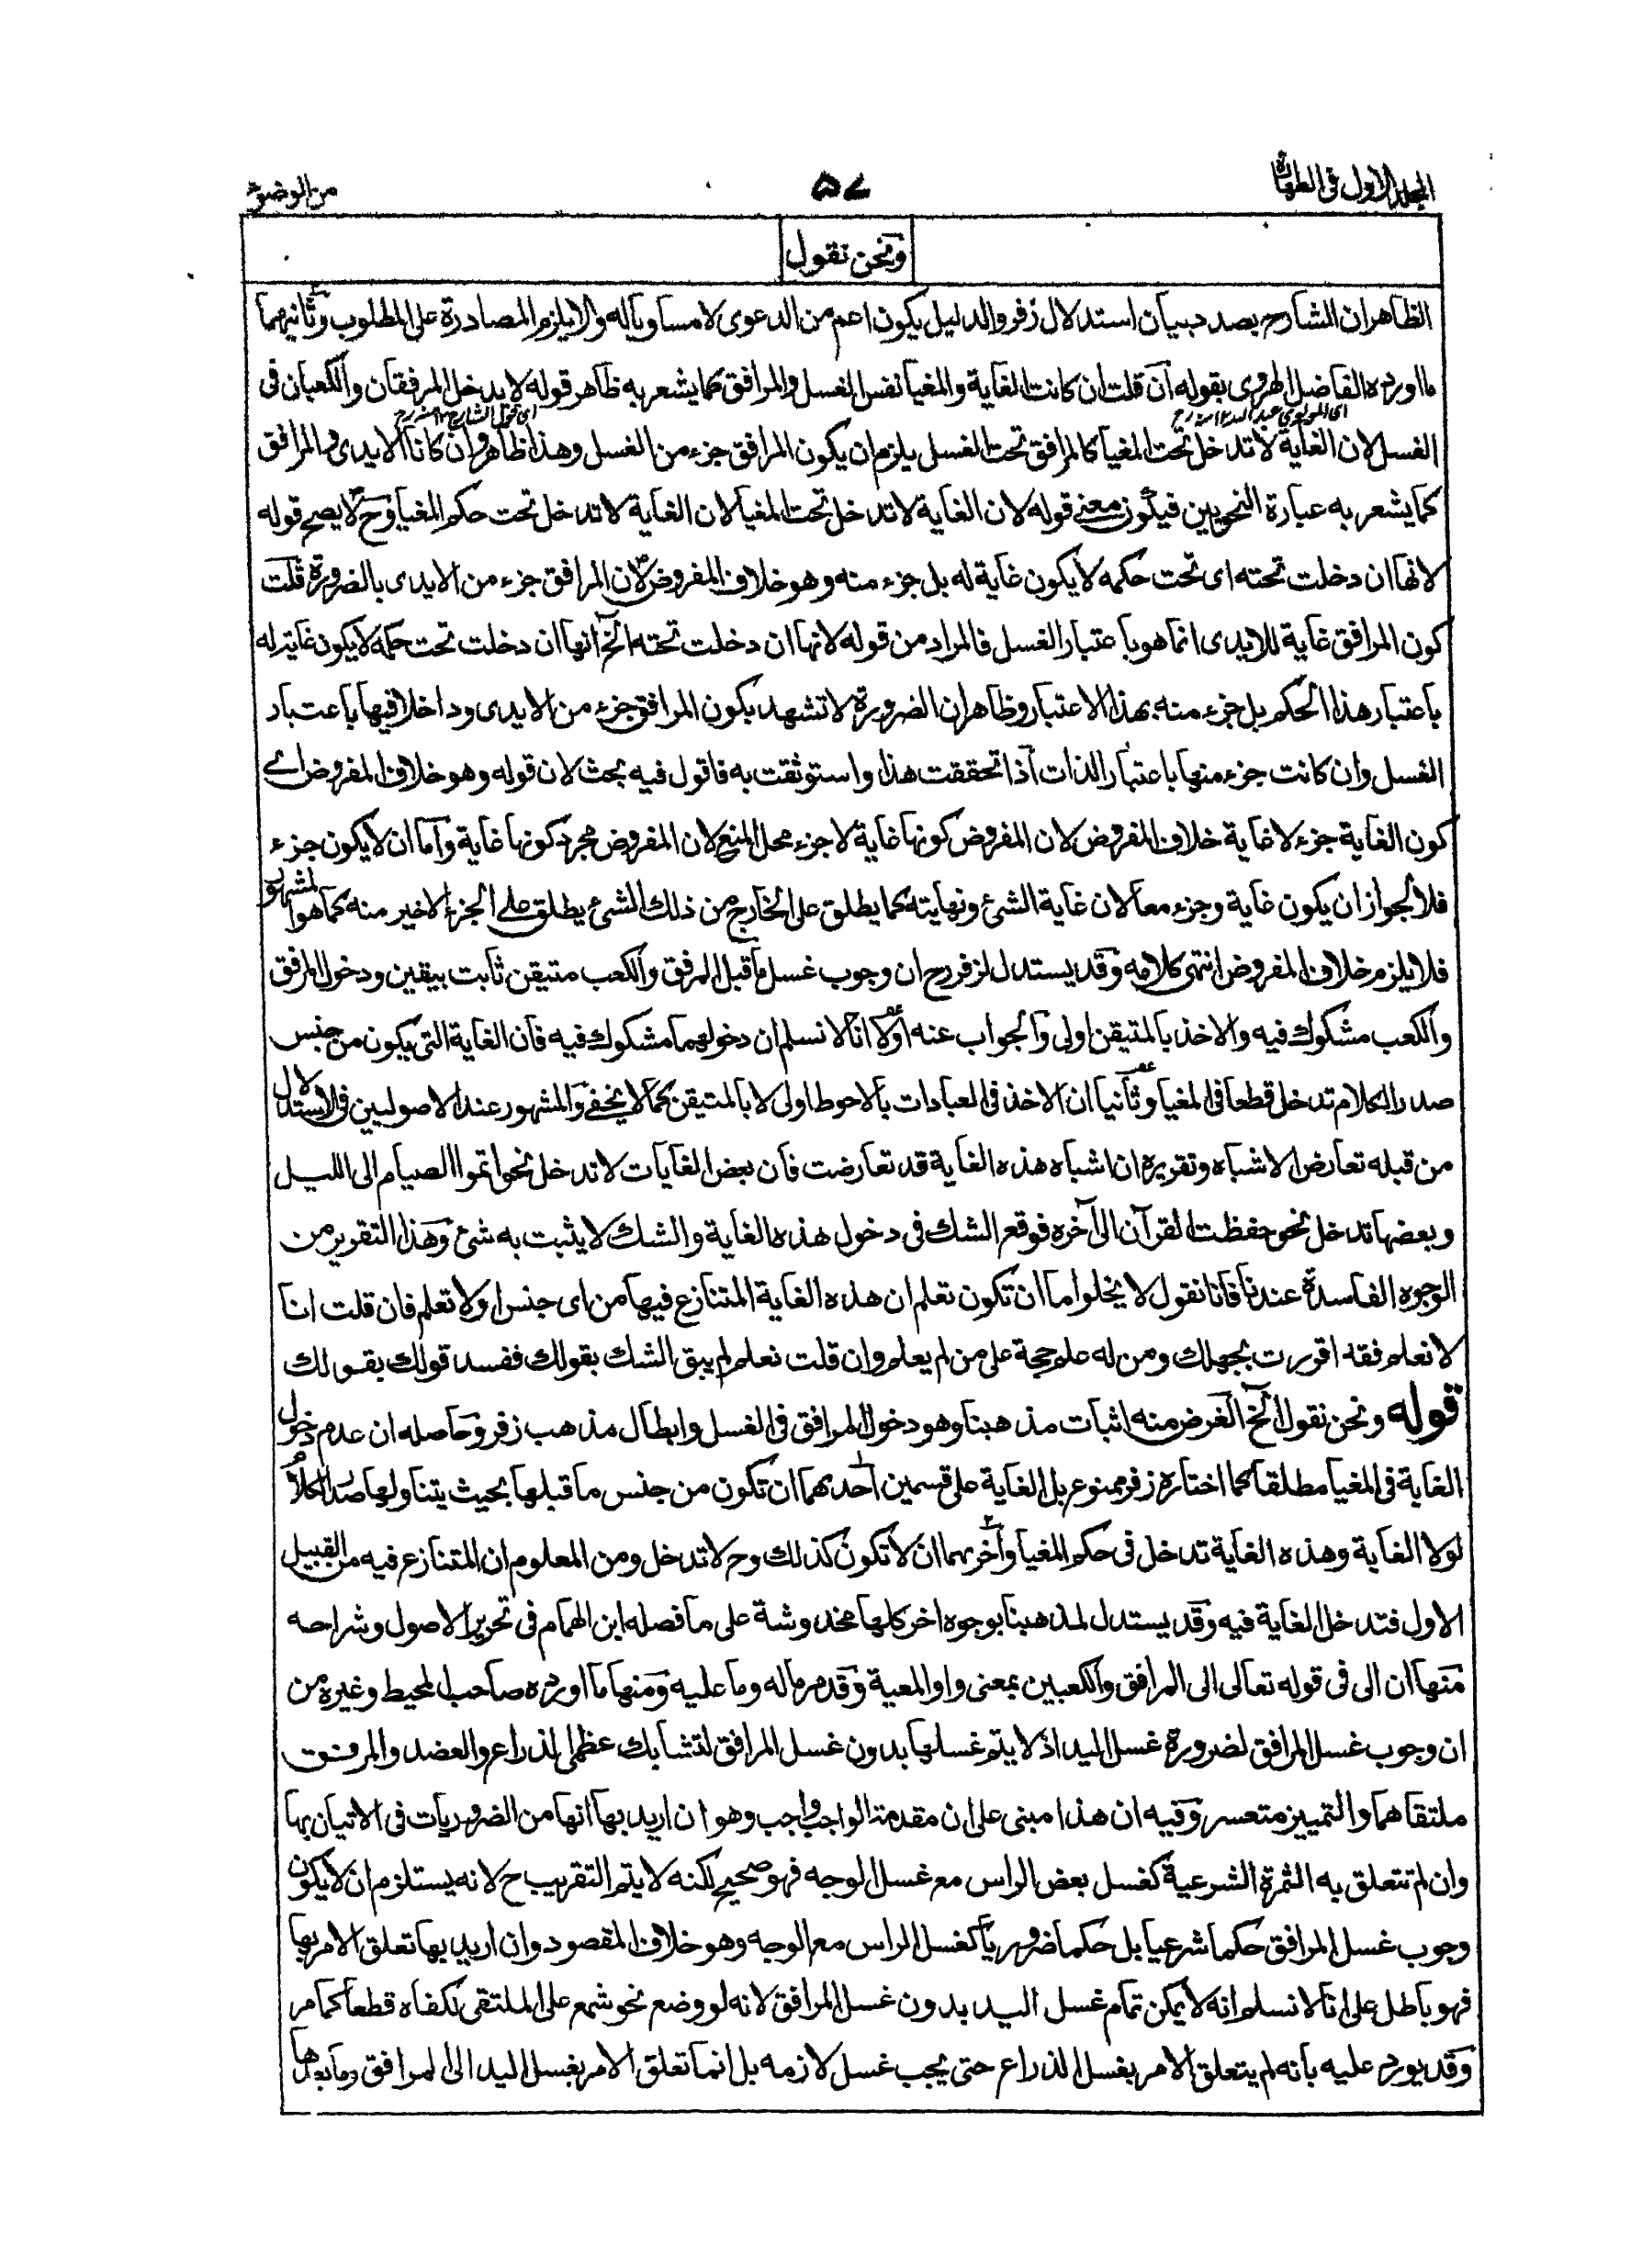 المجلد الاول فى الطهارة
٥٧
من الوضوء
ونحن نقول
الظاهر ان الشارح بصدد بيان استدلال زفر والدليل يكون اعم من الدعوى لا مساويا له والا يلزم المصادرة على المطلوب وثانيهما
ما اورده الفاضل الهروى بقوله ان قلت ان كانت الغاية والمغيا نفس الغسل والمرافق كما يشعر به ظاهر قوله لا يدخل المرفقان والكعبان فى
الغسل لان الغاية لا تدخل تحت المغيا كالمرافق تحت الغسل يلزم ان يكون المرافق جزء من الغسل وهذا ظاهر وان كانا الايدى والمرافق
كما يشعر به عبارة النحويين فيكون معنى قوله لان الغاية لا تدخل تحت المغيا لان الغاية لا تدخل تحت حكم المغيا وح لا يصح قوله
لانها ان دخلت تحته اى تحت حكمه لا يكون غاية له بل جزء منه وهو خلاف المفروض لان المرافق جزء من الايدى بالضرورة قلت
كون المرافق غاية للايدى انما هو باعتبار الغسل فالمراد من قوله لانها ان دخلت تحته الخ انها ان دخلت تحت حكمه لا يكون غاية له
باعتبار هذا الحكم بل جزء منه بهذا الاعتبار وظاهر ان الضرورة لا تشهد بكون المرافق جزء من الايدى وداخلا فيها باعتبار
الغسل وان كانت جزء منها باعتبار الذات اذا تحققت هذا واستوثقت به فاقول فيه بحث لان قوله وهو خلاف المفروض اے
كون الغاية جزء لا غاية خلاف المفروض لان المفروض كونها غاية لا جزء محل المنع لان المفروض مجرد كونها غاية واما ان لا يكون جزء
فلا لجواز ان يكون غاية وجزء معا لان غاية الشئ ونهايته كما يطلق على الخارج من ذلك الشئ يطلق على الجزء الاخير منه كما هو المشهور
فلا يلزم خلاف المفروض انتهى كلامه وقد يستدل لزفر رح ان وجوب غسل ما قبل المرفق والكعب متيقن ثابت بيقين ودخول المرفق
والكعب مشكوك فيه والاخذ بالمتيقن اولى والجواب عنه اولا انا لا نسلم ان دخولهما مشكوك فيه فان الغاية التى يكون من جنس
صدر الكلام تدخل قطعا فى المغيا وثانيا ان الاخذ فى العبادات بالاحوط اولى لا بالمتيقن كما لا يخفے والمشهور عند الاصوليين فى الاستدلال
من قبله تعارض الاشباه وتقريره ان اشباه هذه الغاية قد تعارضت فان بعض الغايات لا تدخل نحو اتموا الصيام الى الليل
وبعضها تدخل نحو حفظت القرآن الى آخره فوقع الشك فى دخول هذه الغاية والشك لا يثبت به شئ وهذا التقرير من
الوجوه الفاسدة عندنا فانا نقول لا يخلوا ما ان تكون تعلم ان هذه الغاية المتنازع فيها من اى جنس او لا تعلم فان قلت انا
لا نعلم فقد اقررت بجهلك ومن له علم حجة على من لم يعلم وان قلت نعلم لم يبق الشك بقولك ففسد قولك بقولك
قوله ونحن نقول الخ الغرض منه اثبات مذهبنا وهو دخول المرافق فى الغسل وابطال مذهب زفر وحاصله ان عدم دخول
الغاية فى المغيا مطلقا كما اختاره زفر ممنوع بل الغاية على قسمين احدهما ان تكون من جنس ما قبلها بحيث يتناولها صدر الكلام
لولا الغاية وهذه الغاية تدخل فى حكم المغيا وآخرهما ان لا تكون كذلك وح لا تدخل ومن المعلوم ان المتنازع فيه من القبيل
الاول فتدخل الغاية فيه وقد يستدل لمذهبنا بوجوه اخر كلها مخدوشة على ما فصله ابن الهمام فى تحرير الاصول وشراحه
منها ان الى فى قوله تعالى الى المرافق والكعبين بمعنى واو المعية وقد مر ما له وما عليه ومنها ما اورده صاحب المحيط وغيره من
ان وجوب غسل المرافق لضرورة غسل اليد اذ لا يتم غسلها بدون غسل المرافق لتشابك عظمى الذراع والعضد والمرفق
ملتقاهما والتمييز متعسر وفيه ان هذا مبنى على ان مقدمة الواجب واجب وهو ان اريد بها انها من الضروريات فى الاتيان بها
وان لم تتعلق به الثمرة الشرعية كغسل بعض الراس مع غسل الوجه فهو صحيح لكنه لا يتم التقريب ح لانه يستلزم ان لا يكون
وجوب غسل المرافق حكما شرعيا بل حكما ضروريا كغسل الراس مع الوجه وهو خلاف المقصود وان اريد بها تعلق الامر بها
فهو باطل على انا لا نسلم انه لا يمكن تمام غسل اليد بدون غسل المرافق لانه لو وضع نحو شمع على الملتقى لكفاه قطعا كما مر
وقد يورد عليه بانه لم يتعلق الامر بغسل الذراع حتى يجب غسل لازمه بل انما تعلق الامر بغسل اليد الى المرافق وما بعدها